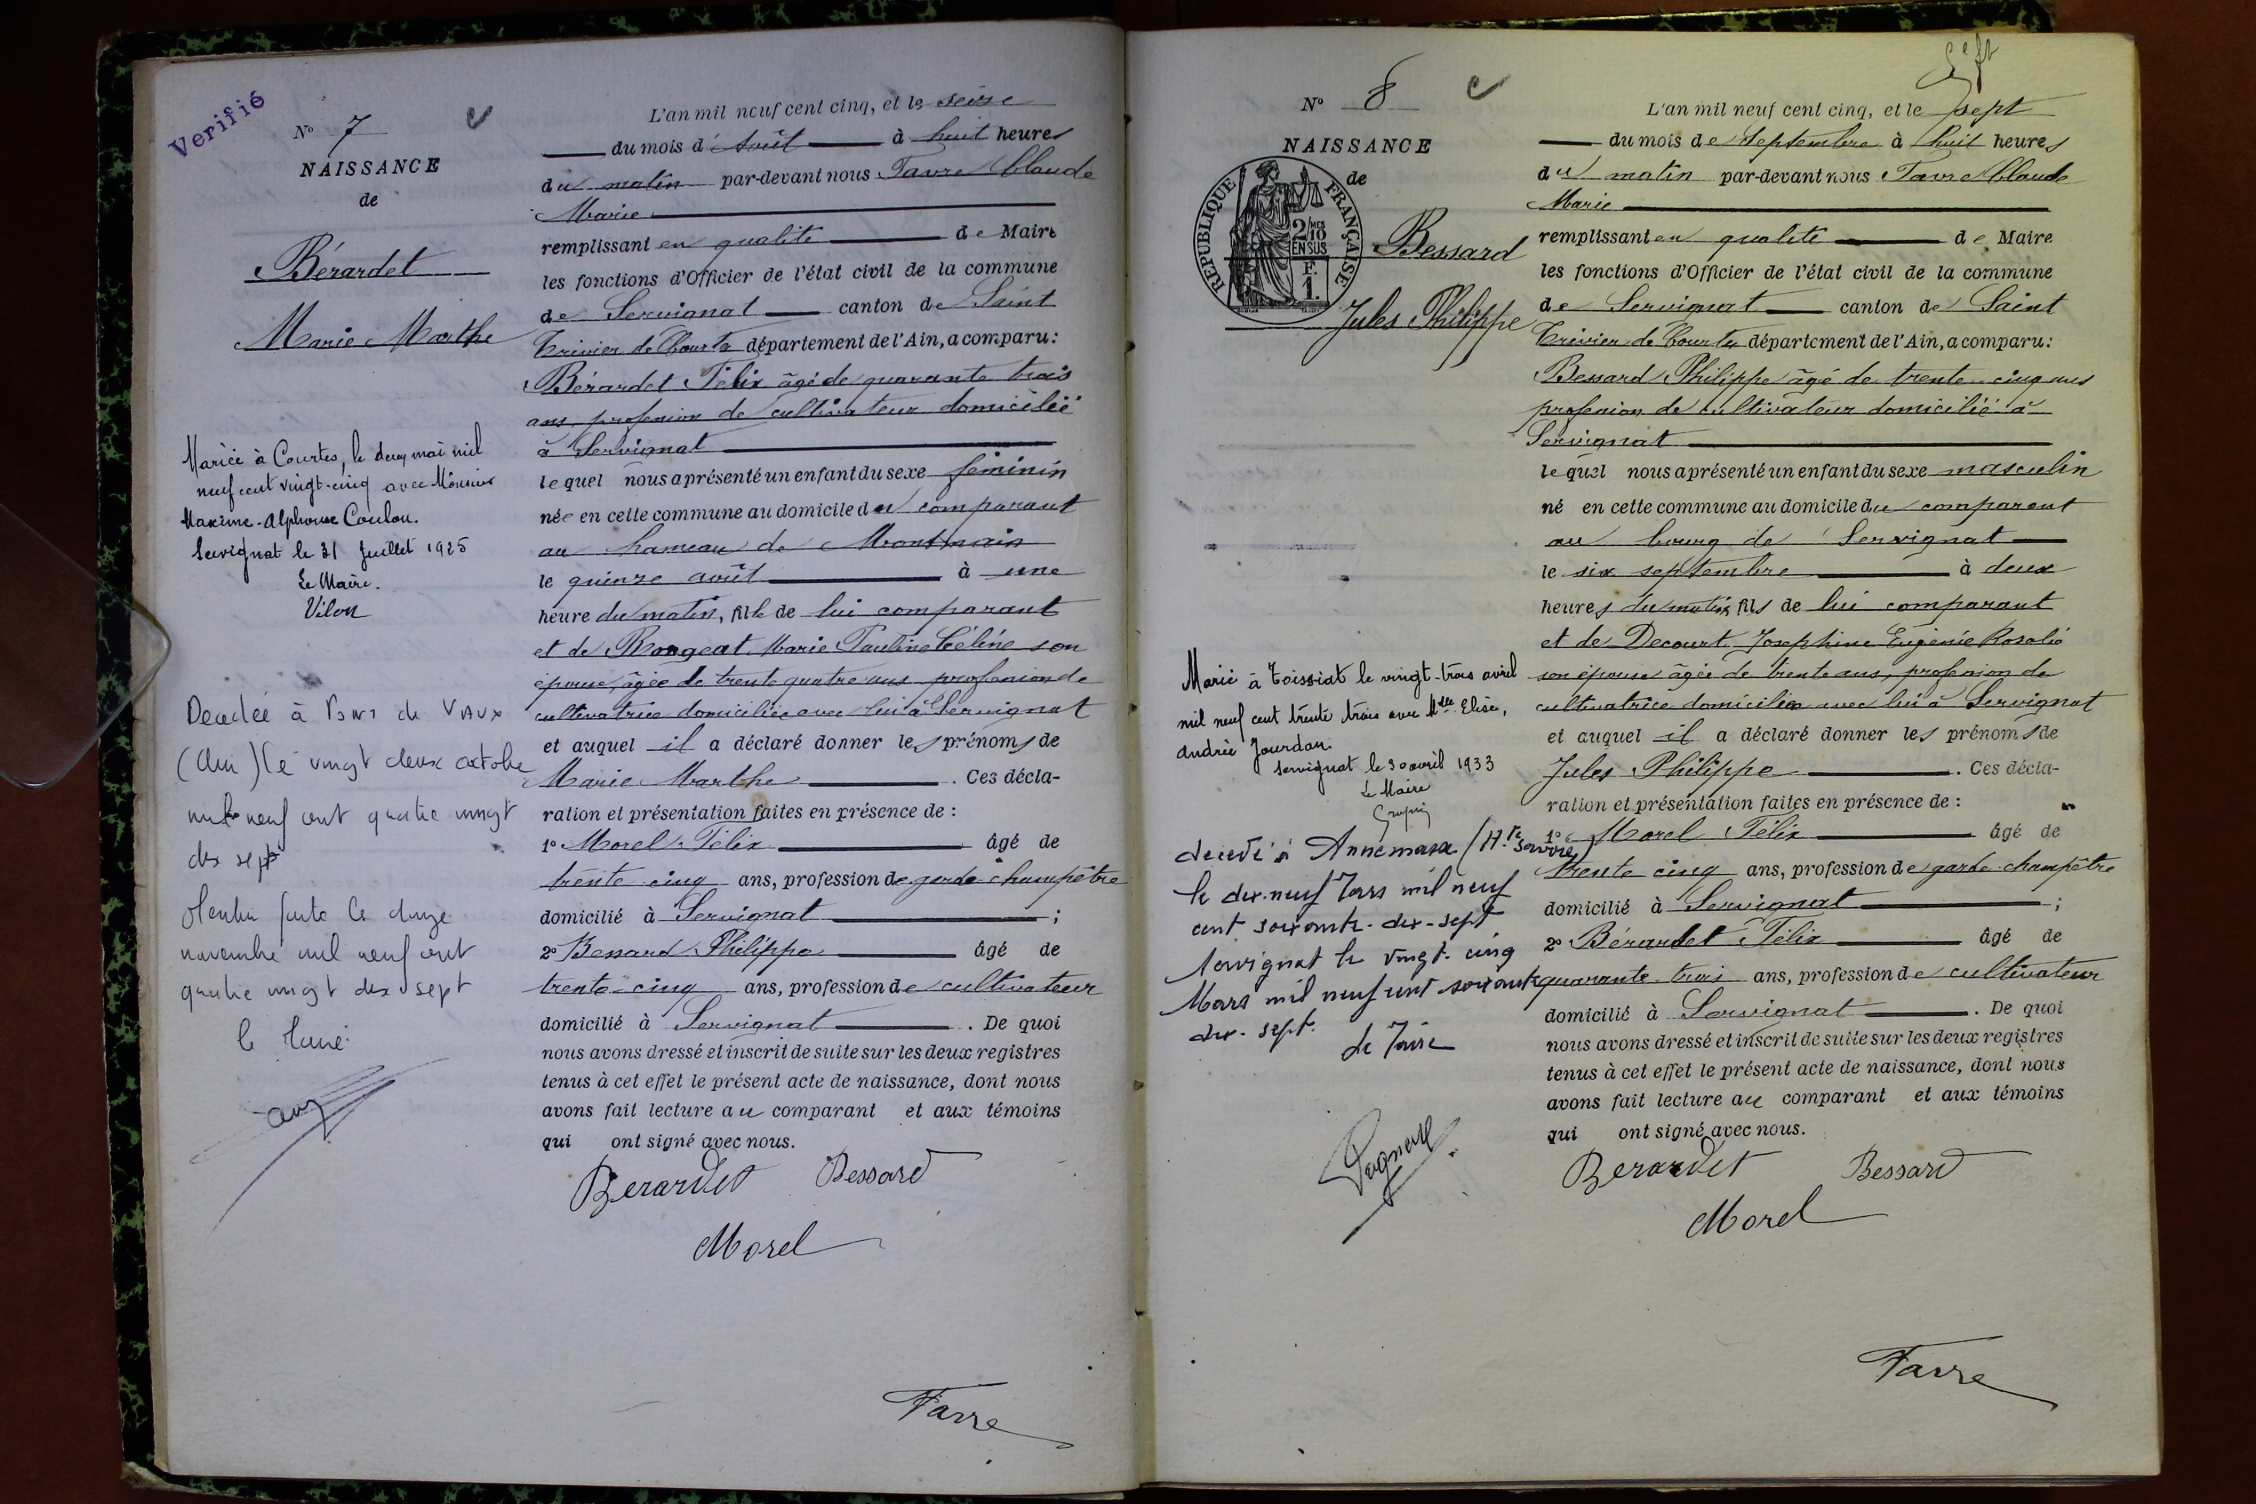 Verifié
No 7
NAISSANCE
de
Bérardet
Marie Marthe
Mariée à Courtes, le deux mai mil
neuf cent vingt-cinq avec Monsieur
Maxime-Alphonse Coulon.
Servignat le 31 Juillet 1925
Le Maire.
Vilon
Décédée à Pont de Vaux
(Ain) le vingt deux octobre
mil neuf cent quatre vingt
dix sept
Mention faite le douze
novembre mil neuf cent
quatre vingt dix sept
le Maire
L'an mil neuf cent cinq, et le seize
du mois d'août à huit heures
du matin par-devant nous Favre Claude
Marie
remplissant en qualité de Maire
les fonctions d'Officier de l'état civil de la commune
de Servignat canton de Saint
Trivier de Courtes département de l'Ain, a comparu:
Bérardet Félix âgé de quarante trois
ans, profession de cultivateur domicilié
à Servignat
lequel nous a présenté un enfant du sexe féminin
née en cette commune au domicile du comparant
au hameau de Montmain
le quinze août à une
heure du matin, fille de lui comparant
et de Rongeat Marie Pauline Céline son
épouse, âgée de trente quatre ans profession de
cultivatrice domiciliée avec lui à Servignat
et auquel il a déclaré donner les prénoms de
Marie Marthe . Ces décla-
ration et présentation faites en présence de :
1º Morel Félix âgé de
trente cinq ans, profession de garde champêtre
domicilié à Servignat ;
2º Bessard Philippe âgé de
trente-cinq ans, profession de cultivateur
domicilié à Servignat . De quoi
nous avons dressé et inscrit de suite sur les deux registres
tenus à cet effet le présent acte de naissance, dont nous
avons fait lecture au comparant et aux témoins
qui ont signé avec nous.
Berardet Bessard
Morel
Favre
Sept
No 8
NAISSANCE
de
REPUBLIQUE FRANÇAISE
2/10 MES
EN SUS
F.
1.
Bessard
Jules Philippe
Marié à Foissiat le vingt-trois avril
mil neuf cent trente trois avec Mlle Elise,
Andrée Jourdan.
Servignat le 30 avril 1933
Le Maire
décédé à Annemasse (Hte Savoie)
le dix-neuf Mars mil neuf
cent soixante-dix-sept
Servignat le vingt-cinq
Mars mil neuf cent soixante
dix-sept.
Le Maire
L'an mil neuf cent cinq, et le sept
du mois de Septembre à huit heures
du matin par-devant nous Favre Claude
Marie
remplissant en qualité de Maire
les fonctions d'Officier de l'état civil de la commune
de Servignat canton de Saint
Trivier de Courtes département de l'Ain, a comparu:
Bessard Philippe âgé de trente-cinq ans
profession de cultivateur domicilié à
Servignat
lequel nous a présenté un enfant du sexe masculin
né en cette commune au domicile du comparant
au bourg de Servignat
le six septembre à deux
heures du matin fils de lui comparant
et de Decourt Josephine Eugénie Rosalie
son épouse âgée de trente ans, profession de
cultivatrice domiciliée avec lui à Servignat
et auquel il a déclaré donner les prénoms de
Jules Philippe . Ces décla-
ration et présentation faites en présence de :
1º Morel Félix âgé de
trente cinq ans, profession de garde-champêtre
domicilié à Servignat ;
2º Bérardet Félix âgé de
quarante trois ans, profession de cultivateur
domicilié à Servignat . De quoi
nous avons dressé et inscrit de suite sur les deux registres
tenus à cet effet le présent acte de naissance, dont nous
avons fait lecture au comparant et aux témoins
qui ont signé avec nous.
Berardet Bessard
Morel
Favre